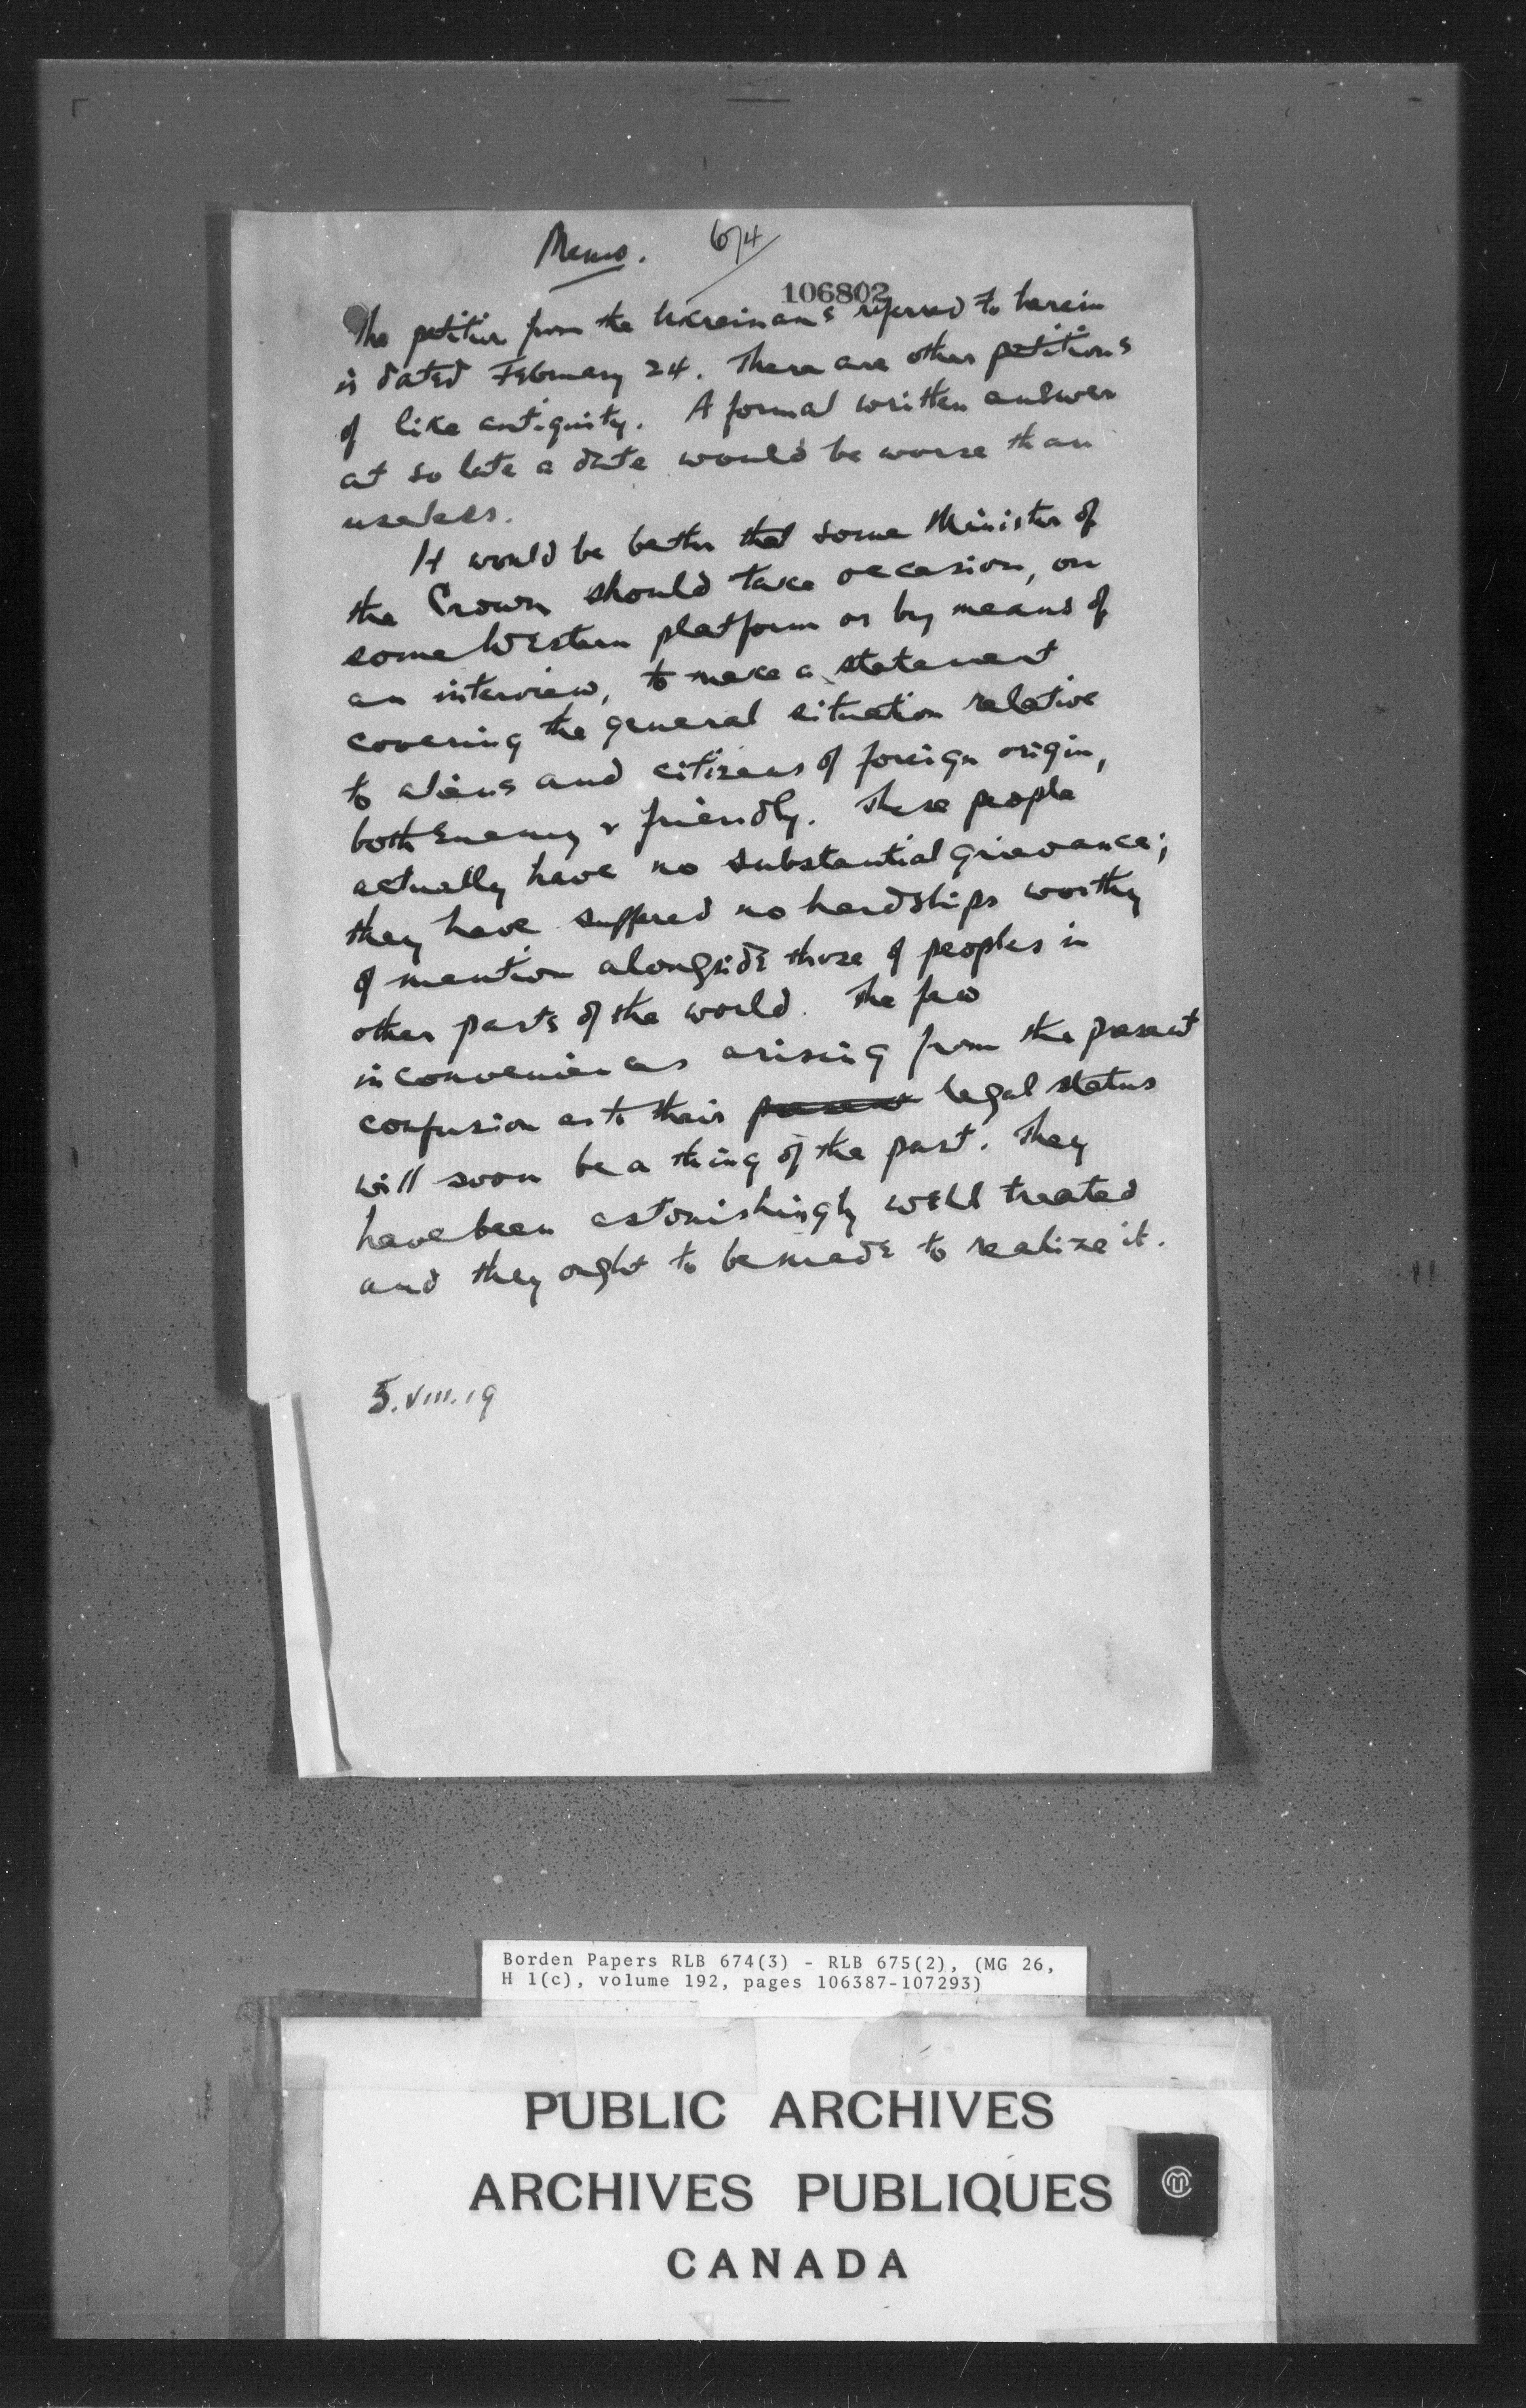 Memo. 674
106802
The petition from the Ukrainians referred to herein
is dated February 24. There are other petitions
of like antiquity. A formal written answer
at so late a date would be worse than
useless.
It would be better that some Minister of
the Crown should take occasion, on
some Western platform or by means of
an interview, to make a statement
covering the general situation relative
to aliens and citizens of foreign origin,
both enemy & friendly. These people
actually have no substantial grievance;
they have suffered no hardships worthy
of mention alongside those of peoples in
other parts of the world. The few
inconveniences arising from the present
confusion as to their present legal status
will soon be a thing of the past. They
have been astonishingly well treated
and they ought to be made to realize it.
5.VIII.19
Borden Papers RLB 674(3) - RLB 675(2), (MG 26,
H 1(c), volume 192, pages 106387-107293)
PUBLIC ARCHIVES
ARCHIVES PUBLIQUES
CANADA